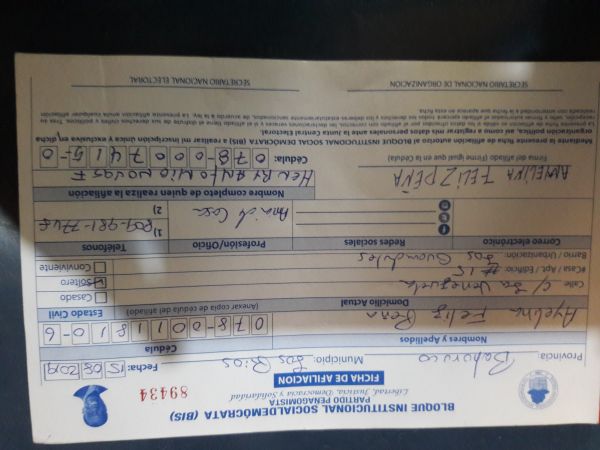 BLOQUE INSTITUCIONAL SOCIALDEMÓCRATA (BIS)
PARTIDO PEÑAGOMISTA
Libertad, Justicia, Democracia y Solidaridad
89434
FICHA DE AFILIACION
Provincia: Bahoruco Municipio: Los Rios Fecha: 15 08 2019
Nombres y Apellidos Cédula
Ayelina Feliz Peña 078-0011811-6
Domicilio Actual (Anexar copia de cédula del afiliado) Estado Civil
Calle C/ La Venezuela Casado
#Casa / Apt. / Edificio: # 15 Soltero
Barrio / Urbanización: Los Guandules Conviviente
Correo electrónico Redes sociales Profesión/Oficio Teléfonos
Ama d Casa 1)
2)
Nombre completo de quien realiza la afiliación
FELIZ PEÑA HENRY ANTONIO NOVAS F
Firma del afiliado (Firmar igual que en la cédula) Cédula: 078-0007415-0
Mediante la presente ficha de afiliación autorizo al BLOQUE INSTITUCIONAL SOCIALDEMOCRATA (BIS) a realizar mi inscripción única y exclusiva en dicha
organización política, así como a registrar mis datos personales ante la Junta Central Electoral.
SECRETARIO NACIONAL DE ORGANIZACION SECRETARIO NACIONAL ELECTORAL